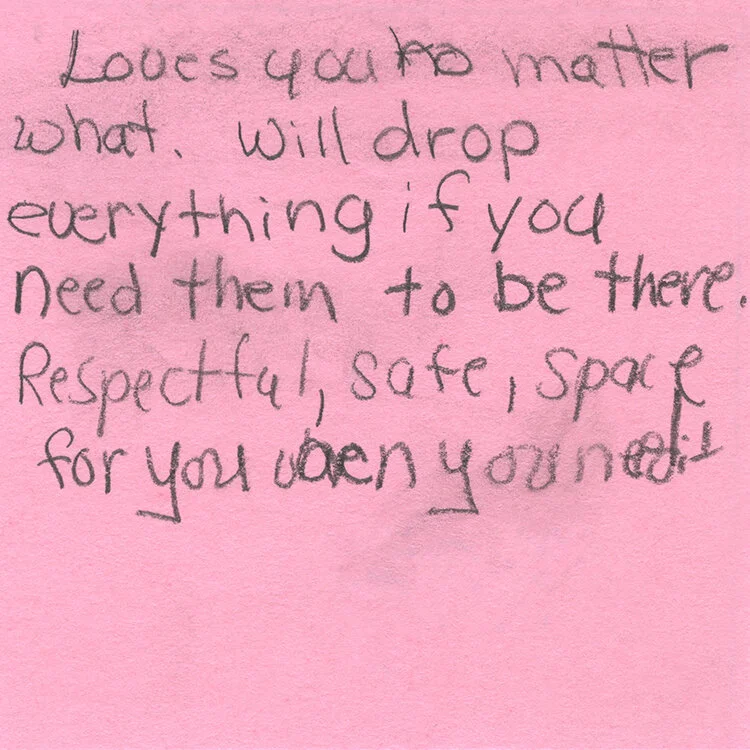 Loves you no matter
what. Will drop
everything if you
need them to be there.
Respectful, safe, space
for you when you need it